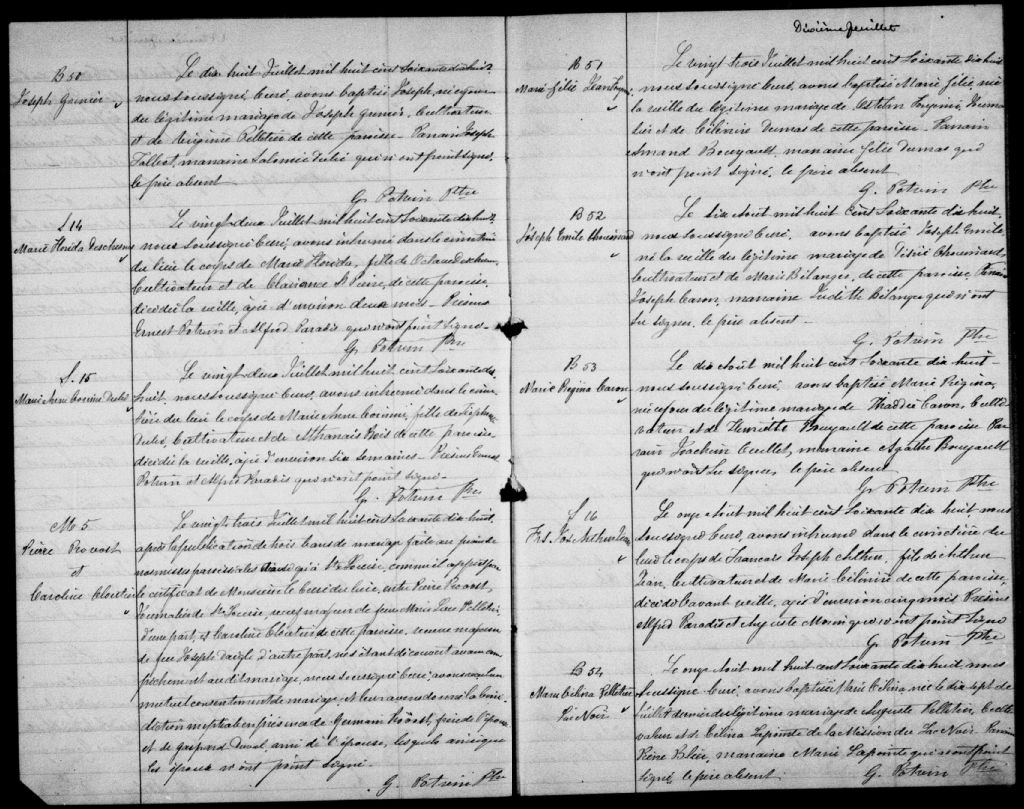 B 50
Joseph Grenier
Le dix huit Juillet mil huit cent soixante dix huit,
nous soussigné Curé, avons baptisé Joseph, né ce jour
du légitime mariage de Joseph Grenier, Cultivateur
et de Virginie Pelletier de cette paroisse. Parrain Joseph
Talbot, marraine Salomée Dubé qui n'ont point signé,
le père absent
G. Potvin Ptre
S 14
Marie Florida Deschesnes
Le vingt deux Juillet mil huit cent soixante dix huit,
nous soussigné Curé, avons inhumé dans le cimetière
du lieu le corps de Marie Florida, fille de Octave Deschesnes
Cultivateur et de Clariance St Pierre, de cette paroisse,
décédée la veille, agée d'environ deux mois. Présents
Ernest Potvin et Alfred Paradis qui n'ont point signé.
G. Potvin Ptre
S. 15
Marie Anne Corinne Dubé
Le vingt deux Juillet mil huit cent soixante dix
huit, nous soussigné Curé, avons inhumé dans le cime
tière du lieu le corps de Marie Anne Corinne, fille de
Dubé, Cultivateur et de Athanaïs Bois de cette paroisse
décédée la veille, agée d'environ six semaines. Présents Ernest
Potvin et Alfred Paradis qui n'ont point signé.
G. Potvin Ptre
M 5
Pierre Provost
et
Caroline Cloutier
Le vingt trois Juillet mil huit cent soixante dix huit,
après la publication de trois bans de mariage faite au prône de
nos messes paroissiales qu'à Ste Louise, comme il appert par
le certificat de Monsieur le Curé du lieu, entre Pierre Provost,
Journalier de Ste Louise, veuf majeur de feue Marie Luce Pelletier
d'une part, et Caroline Cloutier de cette paroisse, veuve majeure
de feu Joseph Daigle d'autre part, ne s'étant découvert aucun em
pêchement au dit mariage, nous soussigné Curé, avons reçu leur
mutuel consentement de mariage et leur avons donné la béné
diction nuptiale en présence de Germain Provost, frère de l'époux
et de Gaspard Duval ami de l'épouse, lesquels ainsi que
les époux n'ont point signé.
G. Potvin Ptre
Dixième feuillet
B 51
Marie Félie
Le vingt trois Juillet mil huit cent soixante dix huit,
nous soussigné Curé, avons baptisé Marie Félie, née
la veille du légitime mariage de Journa
lier et de Célinire Dumas de cette paroisse. Parrain
Amand Bourgault, marraine Félie Dumas qui
n'ont point signé, le père absent.
G. Potvin Ptre
B 52
Joseph Emile Chouinard
Le six Août mil huit cent soixante dix huit,
nous soussigné Curé, avons baptisé Joseph Emile
né la veille du légitime mariage de Désiré Chouinard,
Cultivateur et de Marie Bélanger, de cette paroisse, Parrain
Joseph Caron, marraine Judith Bélanger qui n'ont
su signer, le père absent.
G. Potvin Ptre
B 53
Marie Régina Caron
Le dix Août mil huit cent soixante dix huit
nous soussigné Curé, avons baptisé Marie Régina,
née ce jour du légitime mariage de Thaddée Caron, Culti
vateur et de Henriette Bourgault de cette paroisse Par
rain Joachim Ouellet, marraine Agathe Bourgault
qui n'ont su signer, le père absent
G. Potvin Ptre
S 16
Frs. Jos. Arthur Jean
Le onze Août mil huit cent soixante dix huit, nous
soussigné Curé, avons inhumé dans le cimetière du
lieu le corps de Francois Joseph Arthur, fils de Arthur
Jean, Cultivateur et de Marie Célinire de cette paroisse,
décédé l'avant veille, agé d'environ cinq mois Présents
Alfred Paradis et Auguste Morin qui n'ont point signé
G. Potvin Ptre
B 54
Marie Célina Pelletier
Lac Noir
Le onze Août mil huit cent soixante dix huit, nous
soussigné Curé, avons baptisé Marie Célina née le dix sept de
Juillet dernier du légitime mariage de Auguste Pelletier, Culti
vateur et de Célina Lapointe de la Mission du Lac Noir. Parrain
marraine Marie Lapointe qui n'ont point
signé, le père absent.
G. Potvin Ptre